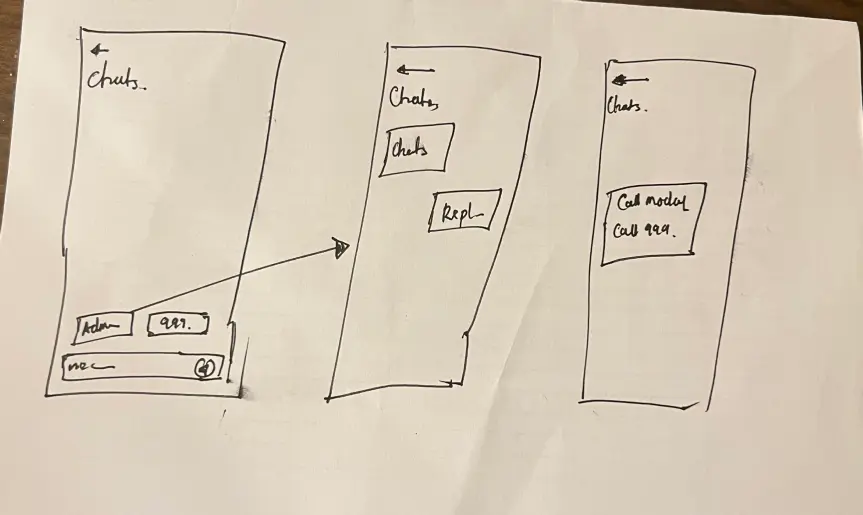 Chats.
Adm
999.
Chats
Chats
Repl
Chats.
Call modal
Call 999.